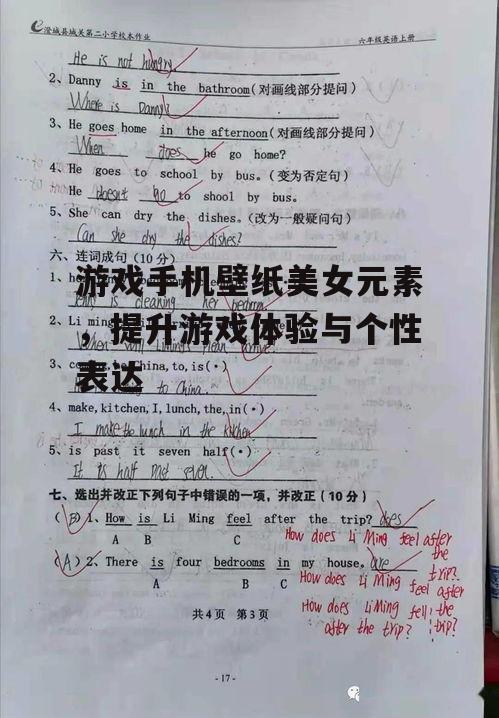 澄城县城关第二小学校本作业 六年级英语上册
He is not hungry
2、Danny is in the bathroom(对画线部分提问)
Where is Danny?
3、He goes home in the afternoon(对画线部分提问)
When does he go home?
4、He goes to school by bus.(变为否定句)
He doesn't go to shool by bus.
5、She can dry the dishes.(改为一般疑问句)
Can she dry the dishes?
六、连词成句(10分)
游戏手机壁纸美女元素
is cleaning her bedroom
2、Li ming
，提升游戏体验与个性
3、 china,to,is(·)
表达
to China.
4、make,kitchen,I,lunch,the,in(·)
I make the lunch in the kitchen
5、is past it seven half(·)
It is half past seven.
七、选出并改正下列句子中错误的一项，并改正(10分)
(B)1、How is Li Ming feel after the trip? does
A B C
How does Li Ming feel after the trip?
(A)2、There is four bedrooms in my house. are
A B C
How does Li Ming feel after the trip?
How does Li Ming fell after the trip?
共4页 第3页
-17-